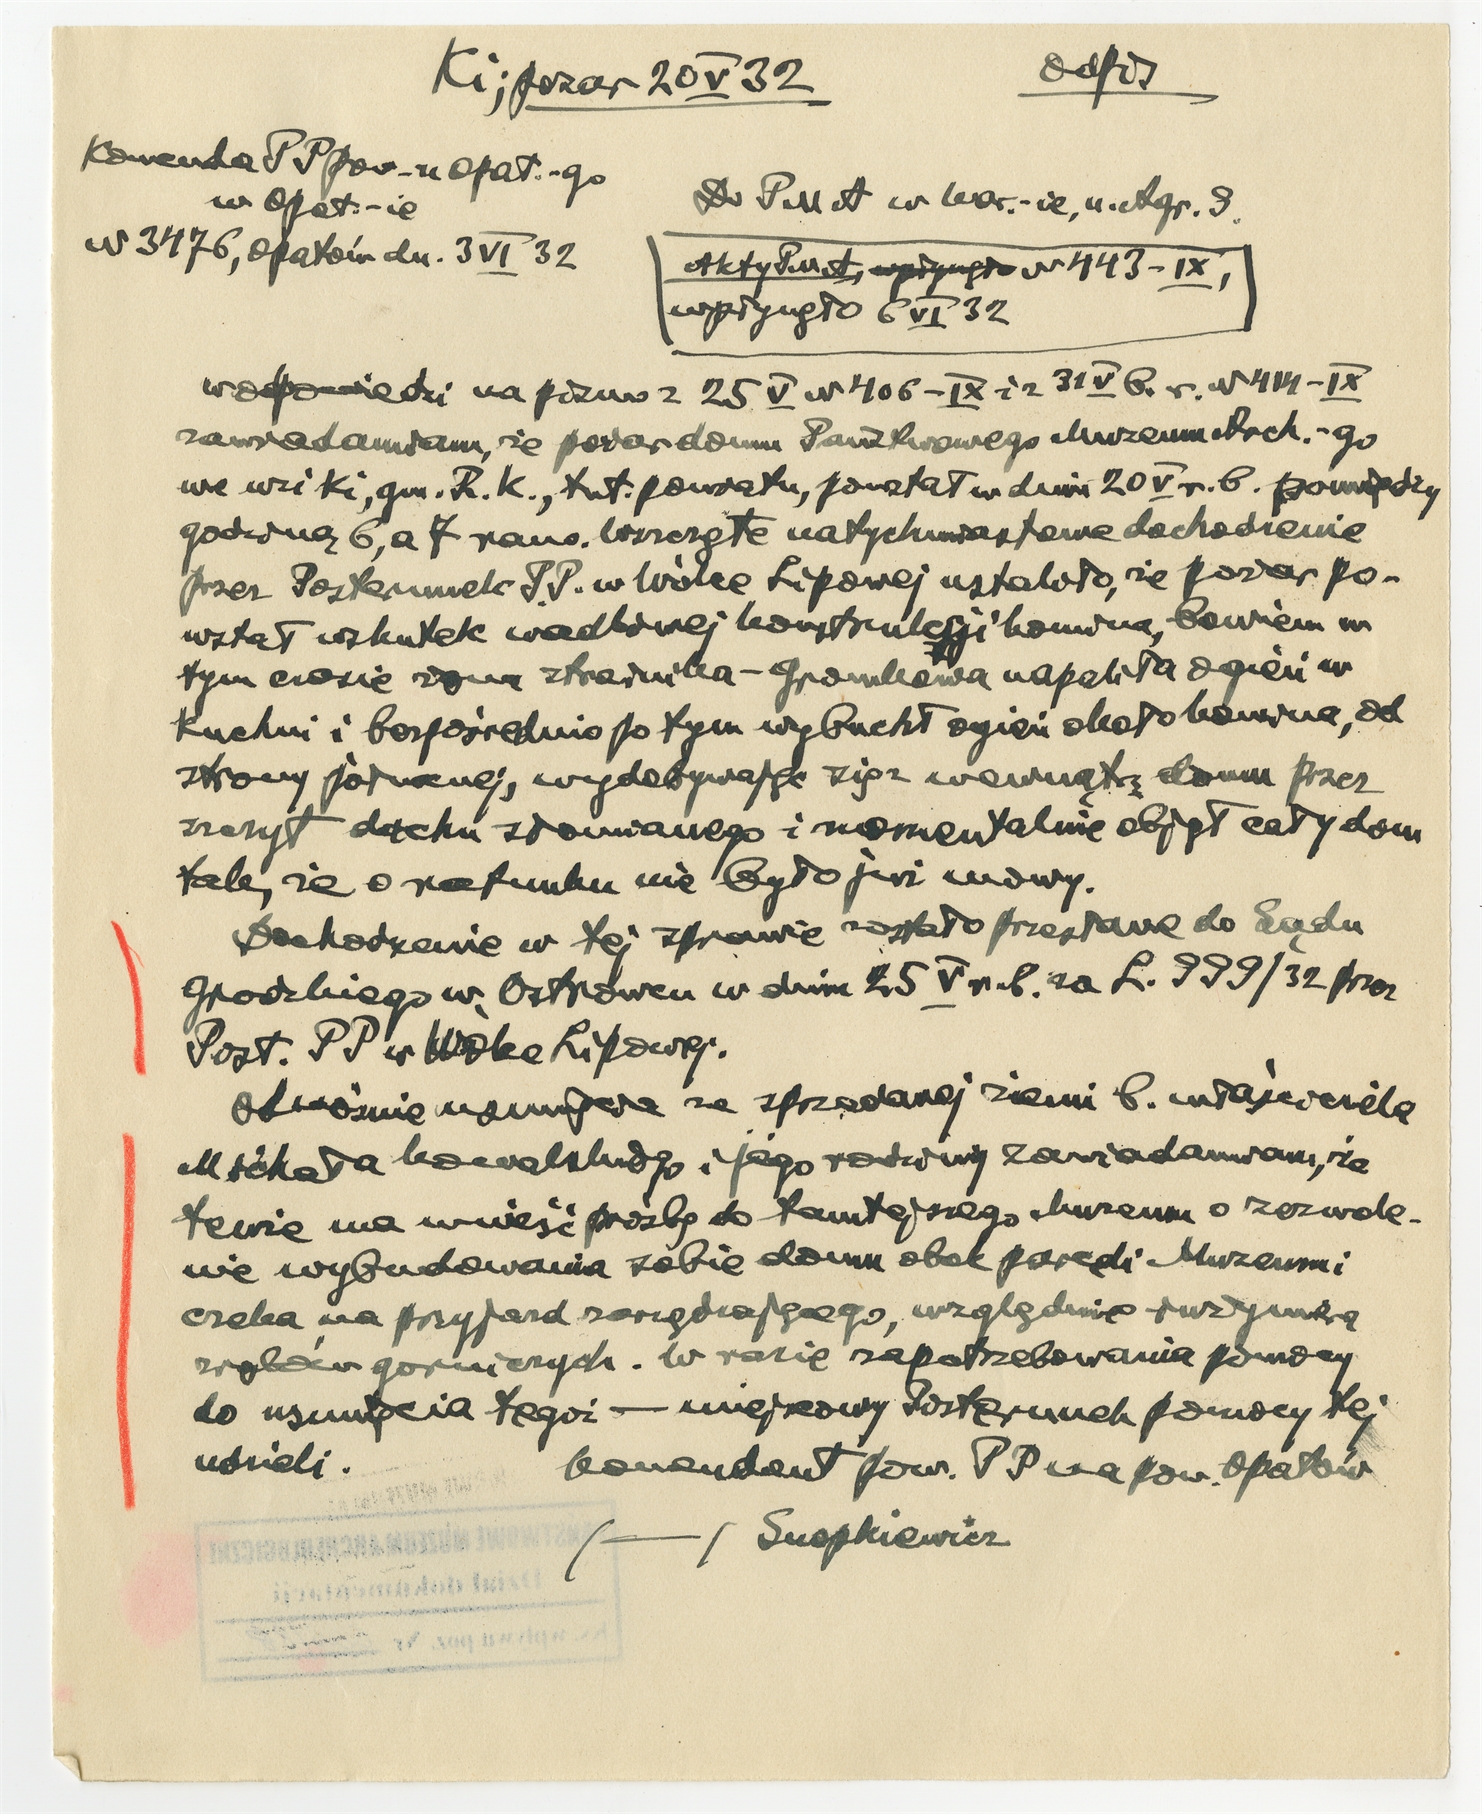 Ki; pożar 20 V 32 odpis
Komenda PP pow-u Opat.-go
w Opat.-ie
Do PMA w War.-ie, u. Agr. 9.
N 3476, Opatów dn. 3 VI 32
Akty PMA, wpłynęło N 443-IX,
wpłynęło 6 VI 32
W odpowiedzi na pismo z 25 V N 406-IX i z 31 V b. r. N 414-IX
zawiadamiam, że pożar domu Państwowego Muzeum Arch.-go
we wsi Ki, gm. R. K., tut. powiatu, powstał w dniu 20 V r. b. pomiędzy
godziną 6, a 7 rano. Wszczęte natychmiastowe dochodzenie
przez Posterunek P.P. w Wólce Lipowej ustaliło, że pożar po-
wstał wskutek wadliwej konstrukcji komina, bowiem w
tym czasie żona strażnika - Gromkowa napaliła ogień w
kuchni i bezpośrednio po tym wybuchł ogień około komina, od
strony północnej, wydobywając się z wewnątrz domu przez
szczyt dachu słomianego i momentalnie objął cały dom
tak, że o ratunku nie było już mowy.
Dochodzenie w tej sprawie zostało przesłane do Sądu
Grodzkiego w Ostrowcu w dniu 25 V r. b. za L. 999/32 przez
Post. PP w Wólce Lipowej.
Odnośnie usunięcia ze sprzedanej ziemi b. właściciela
Michała Kowalskiego i jego rodziny zawiadamiam, że
tenże ma wnieść prośbę do tamtejszego Muzeum o zezwole-
nie wybudowania sobie domu obok posesji Muzeum i
czeka na przyjazd zarządzającego, względnie
górniczych. W razie zapotrzebowania pomocy
do usunięcia tegoż — miejscowy Posterunek pomocy tej
udzieli.
Komendant pow. PP na pow. Opatów
/—/ Snopkiewicz